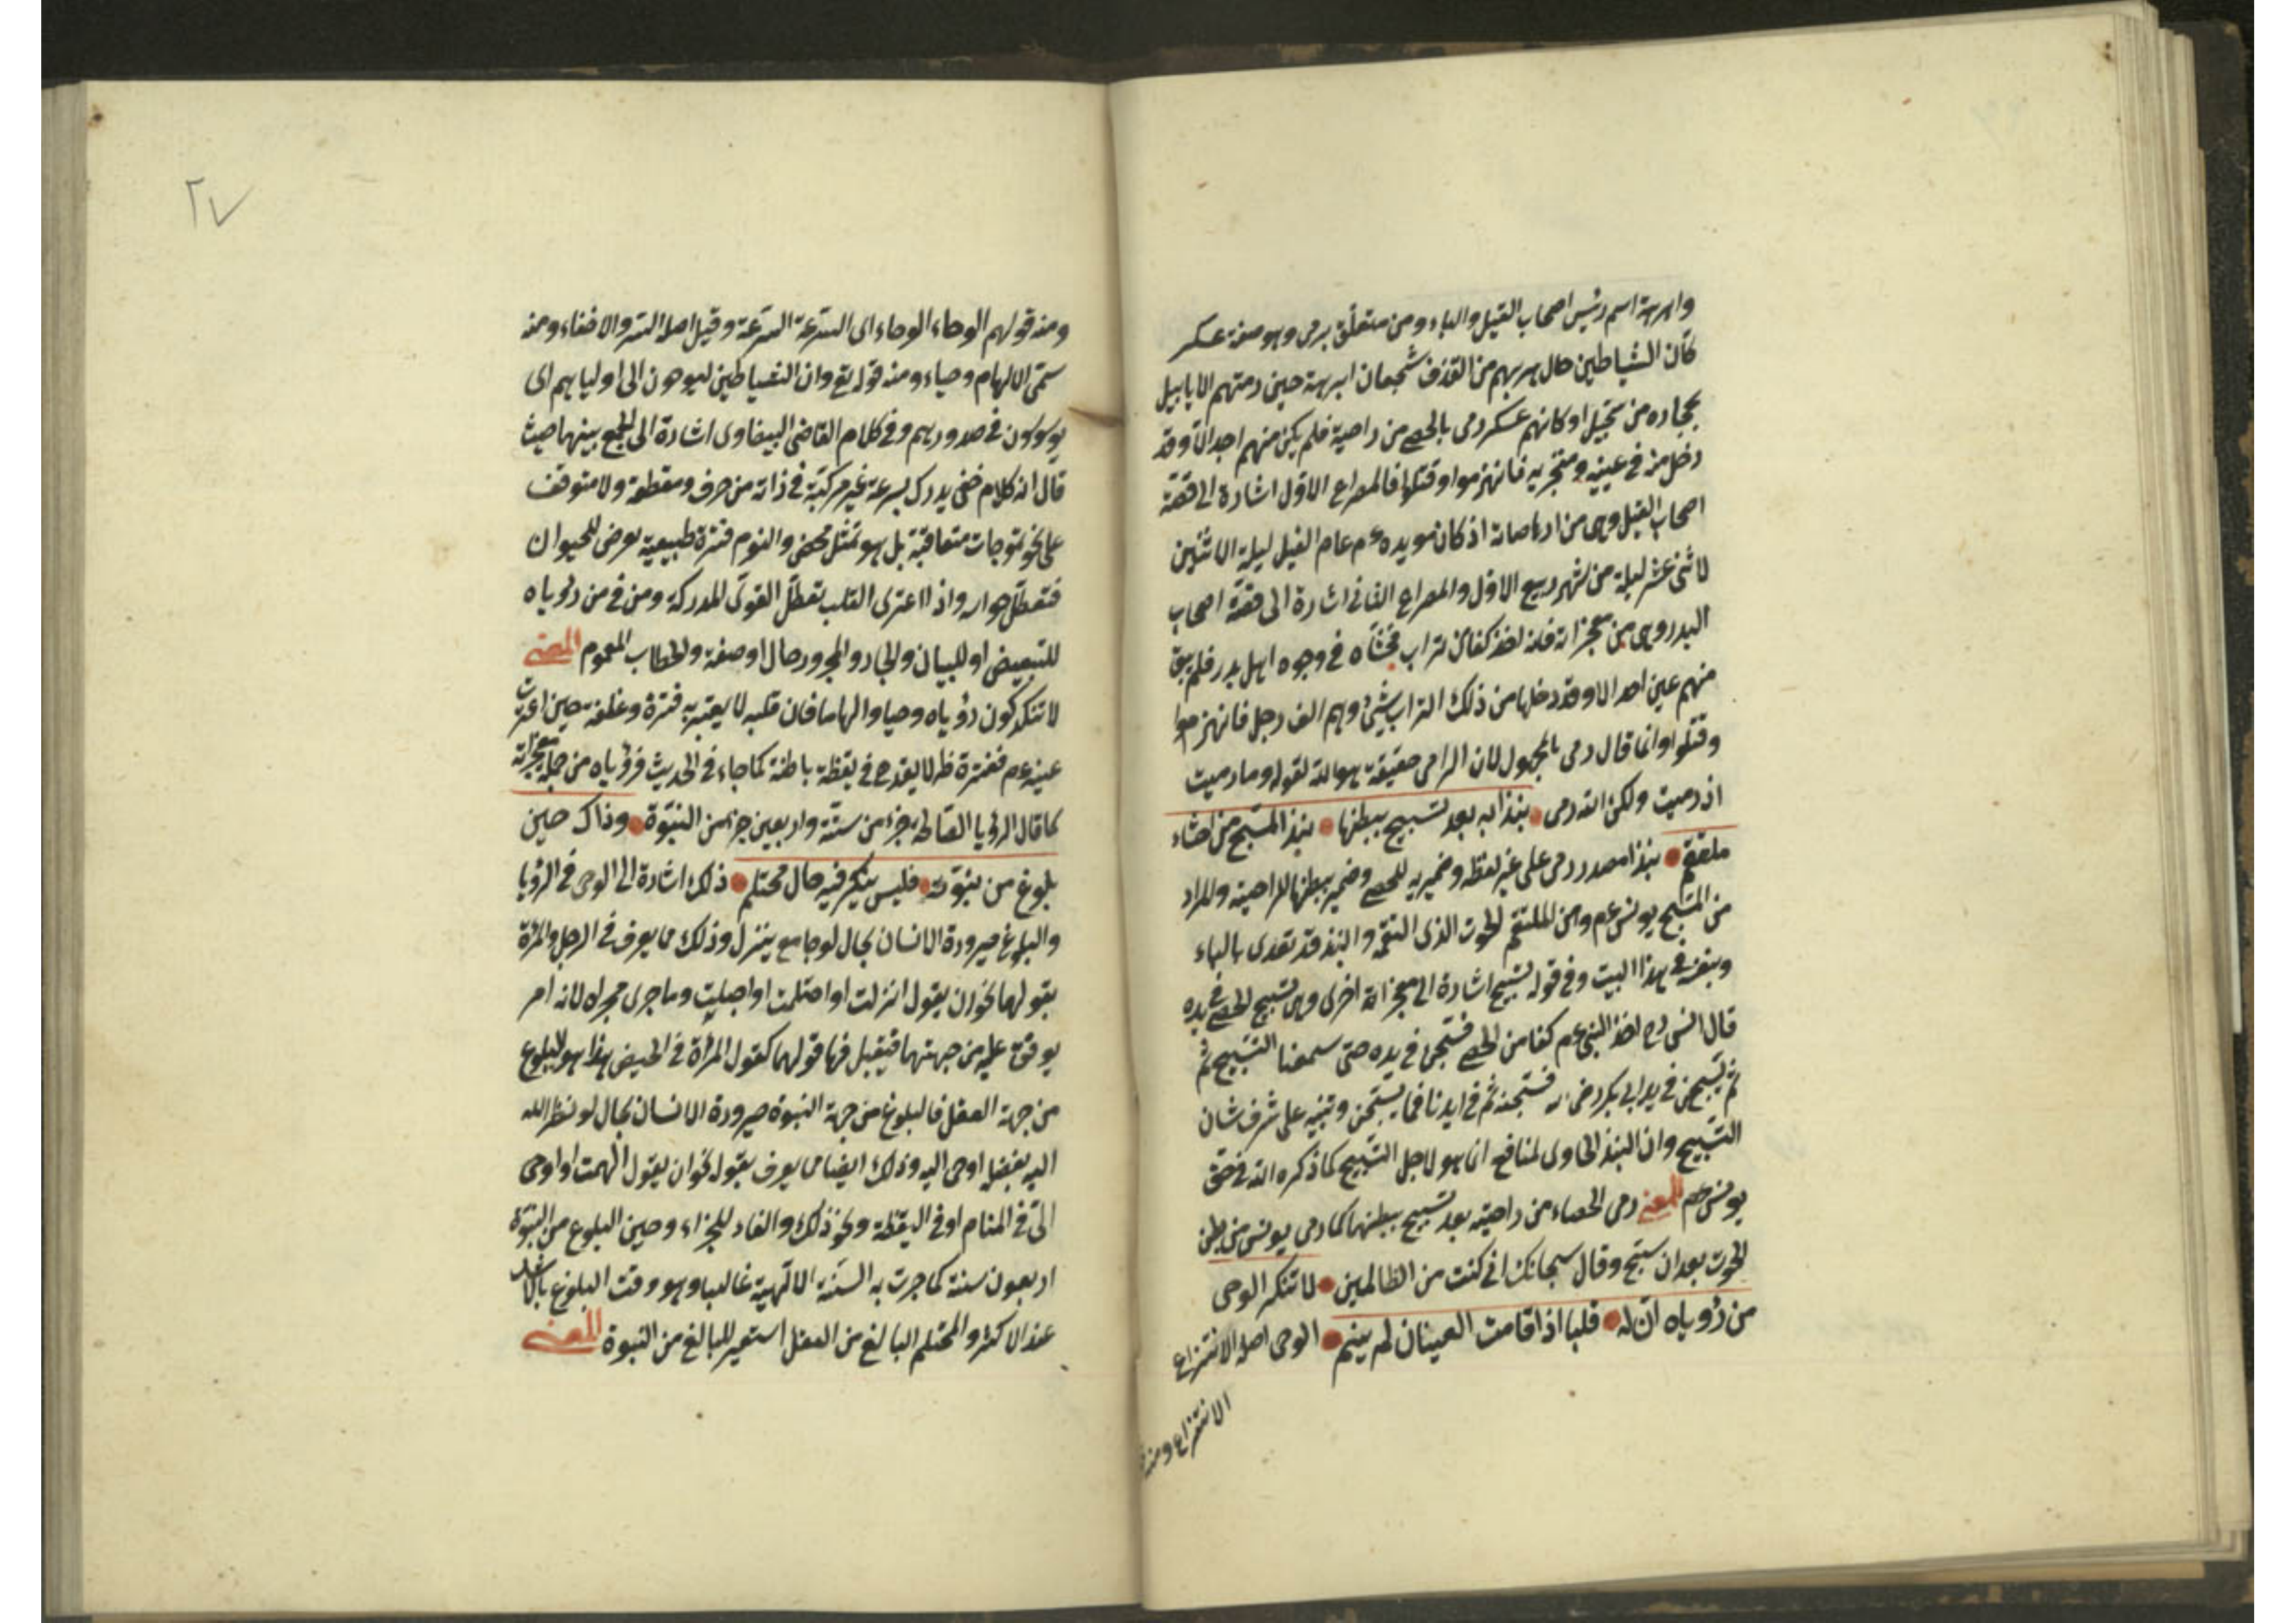 وابرهة اسم رئيس اصحاب الفيل والباء ومن متعلق برمى وهو صفة عسكر
كان الشياطين حال هربهم من القذف شجعان ابرهة حين رمتهم الابابيل
بحجارة من سجيل او كانهم عسكر رمى بالحصى من راحتيه فلم يكن منهم احد الا وقد
دخل من في عينيه ومنخريه فانهزموا وقتلوا فالمصراع الاول اشارة الى قصة
اصحاب الفيل وهى من ارهاصاته اذ كان مويده عم عام الفيل ليلة الاثنين
لاثنى عشر ليلة من شهر ربيع الاول والمصراع الثانى اشارة الى قصة اصحاب
البدر وهى من معجزاته فانه اخذ كفا من تراب فحثاه في وجوه اهل بدر فلم يبق
منهم عين احد الا وقد دخلها من ذلك التراب شئ وهم الف رجل فانهزموا
وقتلوا وانما قال رمى بالمجهول لان الرامى حقيقة هو الله لقوله وما رميت
اذ رميت ولكن الله رمى نبذا به بعد تسبيح ببطنها نبذ المسبح من احشاء
ملتقم نبذا مصدر رمى على غير لفظه وضمير به للحصى وضمير ببطنها للراحتيه والمراد
من المسبح يونس عم ومن الملتقم الحوت الذى التقمه والنبذ قد تعدى بالباء
وبنفسه في هذا البيت وفي قوله تسبيح اشارة الى معجزاته اخرى وهى تسبيح الحصى في يده
قال انس رض اخذ النبى عم كفا من الحصى فسبحن في يده حتى سمعنا التسبيح ثم
ثم تسبحن في يد ابى بكر رضى الله فسبحنه ثم في ايدنا فما يسبحن وتنبيه على شرف شان
التسبيح وان النبذ الحاوى لمنافع انما هو لاجل التسبيح كما ذكره الله في حق
يونس عم المعنى رمى الحصاء من راحتيه بعد تسبيح ببطنهما كما رمى يونس من بطن
الحوت بعد ان سبح وقال سبحانك انى كنت من الظالمين لا تنكر الوحى
من رؤياه ان له قلبا اذا نامت العينان لم ينم الوحى اصله الانتزاع
الانتزاع ومنه
٢٧
ومنه قولهم الوحاء الوحاء اى السرعة السرعة وقيل اصله الستر والاخفاء ومنه
سمى الالهام وحياء ومنه قوله تع وان الشياطين ليوحون الى اوليائهم اى
يوسوسون في صدورهم وفي كلام القاضى البيضاوى اشارة الى الجمع بينهما حيث
قال انه كلام خفى يدرك بسرعة غير مركبة في ذاته من حرف ومقطعة ولا متوقف
على نحو تموجات متعاقبة بل هو تمثل محض والنوم فترة طبيعية يعرض للحيوان
فتعطل حواسه واذا اعترى القلب تعطل القوى المدركة ومن في من رؤياه
للتبعيض او للبيان والجار والمجرور حال او صفة والخطاب للعموم المعنى
لا تنكر كون رؤياه وحيا والهاما فان قلبه لا يعتريه فترة وغفلة حين اعترت
عينه عم ففترة ظ لا يقدح في يقظة باطنة كما جاء في الحديث فرؤياه من جملة معجزاته
كما قال الرؤيا الصالحة جزء من ستة واربعين جزء من النبوة وذاك حين
بلوغ من نبوته فليس ينكر فيه حال محتلم ذلك اشارة الى الوحى في الرؤيا
والبلوغ صيرورة الانسان بحال لو جامع ينزل وذلك مما يعرف في الرجل والمرأة
بقولهما نحو ان يقول انزلت او احتلمت او احبلت وما جرى مجراه لانه امر
يوقف عليه من جهتهما فيقبل فيه قولهما كقول المرأة في الحيض هذا هو البلوغ
من جهة العقل فالبلوغ من جهة النبوة صيرورة الانسان بحال لو نظر الله
اليه بفضله اوحى اليه وذلك ايضا مما يعرف بقوله نحو ان يقول الهمت او اوحى
الى في المنام او في اليقظة ونحو ذلك والفاء للجزاء وحين البلوغ من النبوة
اربعون سنة كما جرت به السنة الالهية غالبا وهو وقت البلوغ
عند الاكثر والمحتلم البالغ من العقل استعير للبالغ من النبوة المعنى